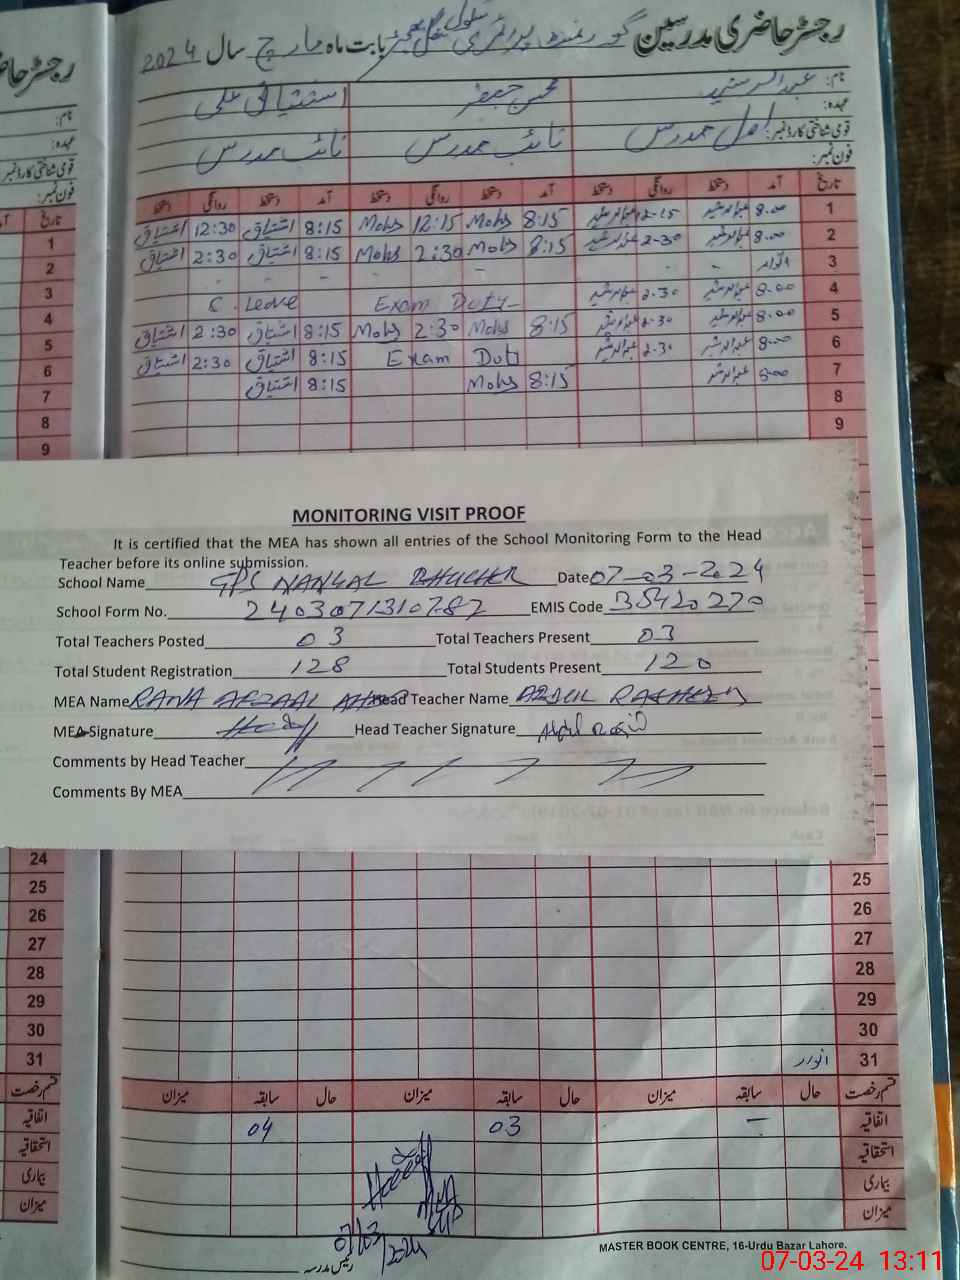 رجسٹر حاضری مدرسین گورنمنٹ پرائمری سکول بابت ماہ مارچ سال 2024
نام: عبدالرشید محسن جعفر اشتیاق علی
عہدہ:
قومی شناختی کارڈ نمبر: نائب مدرس نائب مدرس
فون نمبر:
تاریخ آمد دستخط روانگی دستخط آمد دستخط روانگی دستخط آمد دستخط روانگی دستخط
1 8.00 عبدالرشید 2-15 عبدالرشید 8:15 Mohs 12:15 Mohs 8:15 اشتیاق 12:30 اشتیاق
2 8.00 عبدالرشید 2-30 عبدالرشید 8:15 Mohs 2:30 Mohs 8:15 اشتیاق 2:30 اشتیاق
3 اتوار - - - -
4 8.00 عبدالرشید 2.30 عبدالرشید Exam Duty Leave
5 8.00 عبدالرشید 2.30 عبدالرشید 8:15 Mohs 2:30 Mohs 8:15 اشتیاق 2:30 اشتیاق
6 8.00 عبدالرشید 2.30 عبدالرشید Exam Duty 8:15 اشتیاق 2:30 اشتیاق
7 8.00 عبدالرشید 8:15 Mohs 8:15 اشتیاق
8
9
MONITORING VISIT PROOF
It is certified that the MEA has shown all entries of the School Monitoring Form to the Head
Teacher before its online submission.
School Name GPS NANGAL Date 07-03-2024
School Form No. 24030713107-87 EMIS Code 35420270
Total Teachers Posted 03 Total Teachers Present 03
Total Student Registration 128 Total Students Present 120
MEA Name RANA AFZAAL AHMAD Head Teacher Name ABDUL RASHEED
MEA Signature Head Teacher Signature Abdul Rashid
Comments by Head Teacher
Comments By MEA
24
25 25
26 26
27 27
28 28
29 29
30 30
31 31 اتوار
قسم رخصت حال سابقہ میزان حال سابقہ میزان حال سابقہ میزان
اتفاقیہ - 03 04
استحقاقیہ
بیماری
میزان
07/03/2024
رئیس مدرسہ
MASTER BOOK CENTRE, 16-Urdu Bazar Lahore.
07-03-24 13:11